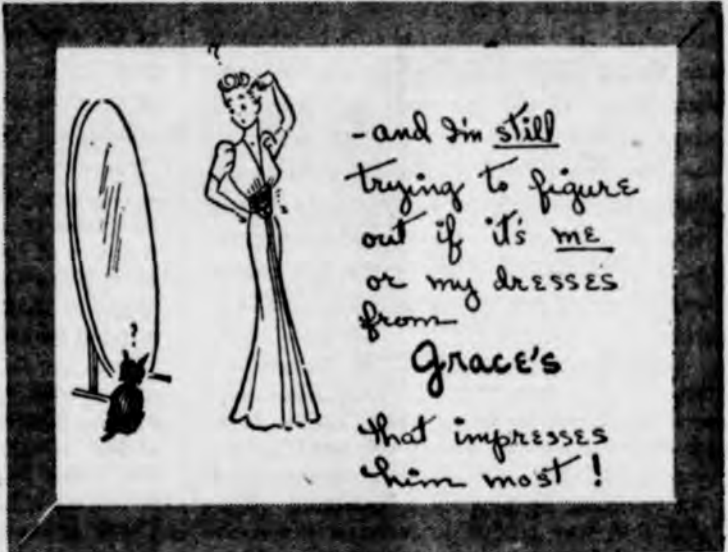 ?
- and I'm still
trying to figure
out if it's me
or my dresses
from
Grace's
that impresses
him most!
?